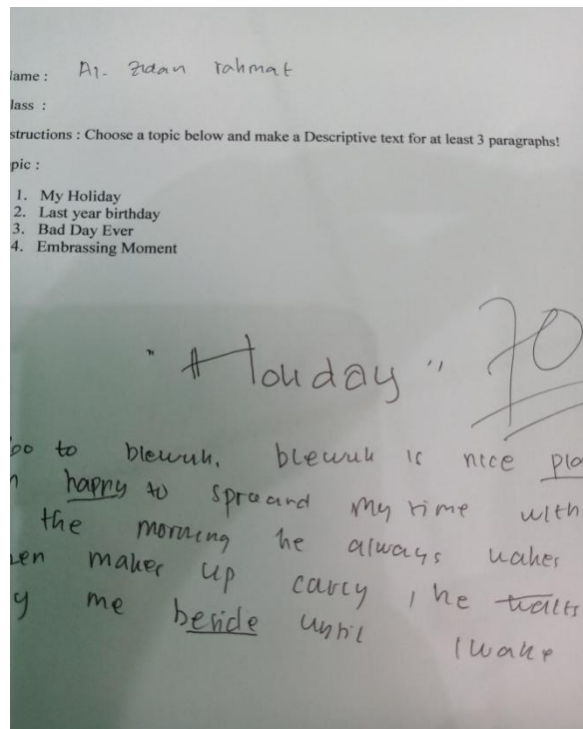 ame : A1. Zidan rahmat
lass :
structions : Choose a topic below and make a Descriptive text for at least 3 paragraphs!
pic :
1. My Holiday
2. Last year birthday
3. Bad Day Ever
4. Embrassing Moment
"Holiday" 70
to blewuh, blewuh is nice pla
happy to my time with
the morning he always wakes
en up , he
y me beside until I wake